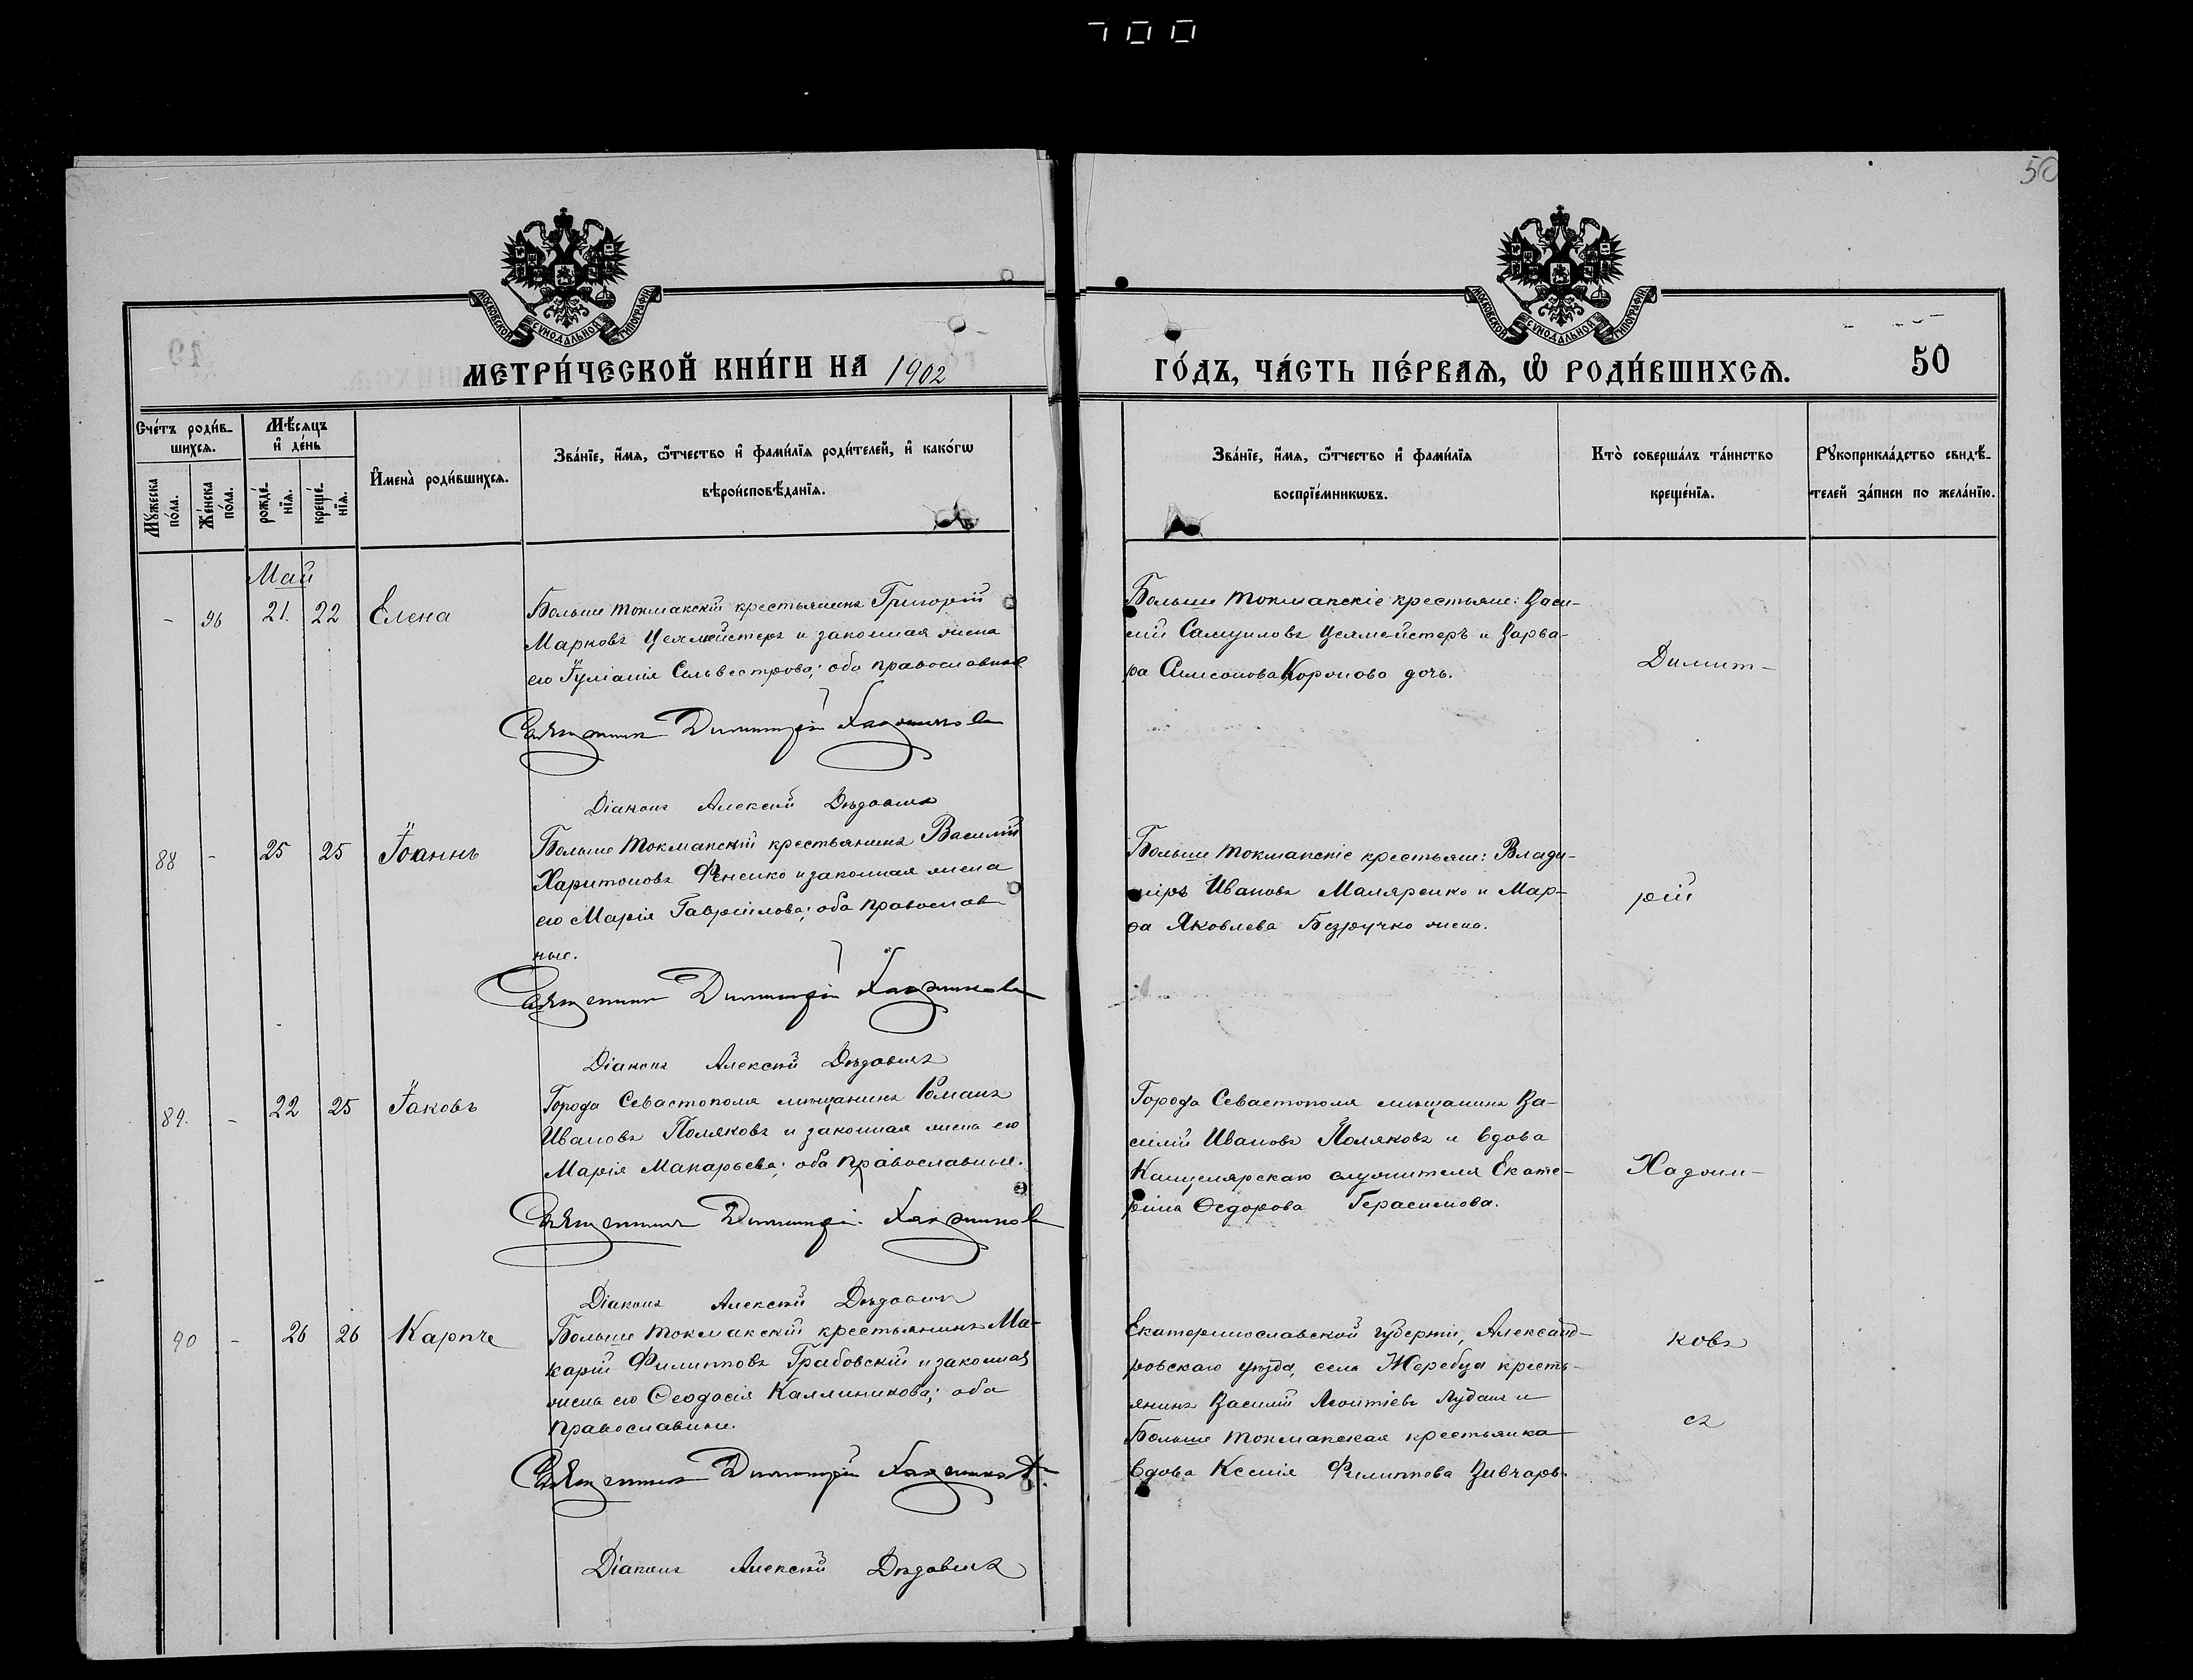 700
50
МОСКОВСКОЙ СУНОДАЛЬНОЙ ТИПОГРАФІИ
МОСКОВСКОЙ СУНОДАЛЬНОЙ ТИПОГРАФІИ
МЕТРИ́ЧЕСКОЙ КНИ́ГИ НА 1902
ГО́ДЪ, ЧА́СТЬ ПЕ́РВАѦ, Ѡ҆ РОДИ́ВШИХСѦ.
50
Сче́тъ роди́в-
шихсѧ.
Мꙋ́жеска
по́ла.
Же́нска
по́ла.
Мѣ́сѧцъ
и҆ де́нь
рожде́-
нїѧ.
креще́-
нїѧ.
И҆мена̀ роди́вшихсѧ.
Зва́нїе, и҆́мѧ, ѻ҆́тчество и҆ фами́лїѧ роди́телей, и҆ како́гѡ
вѣроисповѣ́данїѧ.
Зва́нїе, и҆́мѧ, ѻ҆́тчество и҆ фами́лїѧ
воспрїе́мникѡвъ.
Кто̀ соверша́лъ та́инство
креще́нїѧ.
Рꙋкоприкла́дство свидѣ́-
телей за́писи по жела́нїю.
Май
- 96 21. 22 Елена
Больше Токмакскій крестьянинъ Григорій
Марковъ Целмейстеръ и законная жена
его Іуліанія Сельвестрова; оба православные
Священникъ Димитрій Хаджиновъ
Діаконъ Алексѣй
Больше Токмакскіе крестьяне: Васи-
лій Самуиловъ Целмейстеръ и Варва-
ра Самсонова дочь.
Димит-
88 - 25 25 Іоаннъ
Больше Токмакскій крестьянинъ Василій
Харитоновъ Фененко и законная жена
его Марія Гавриилова; оба православ
ные.
Священникъ Димитрій Хаджиновъ
Діаконъ Алексѣй
Больше Токмакскіе крестьяне: Влади-
міръ Ивановъ Маляренко и Мар-
ѳа Яковлева Безручко жена.
рій
89. - 22 25 Іаковъ
Города Севастополя мѣщанинъ Романъ
Ивановъ Поляковъ и законная жена его
Марія Макарьева; оба православные.
Священникъ Димитрій Хаджиновъ
Діаконъ Алексѣй
Города Севастополя мѣщанинъ Ва-
силій Ивановъ Поляковъ и вдова
Канцелярскаго служителя Екате-
рина Ѳедорова Герасимова.
Хаджи-
90 - 26 26 Карпъ
Больше Токмакскій крестьянинъ Ма-
карій Филипповъ Грабовскій и законная
жена его Ѳеодосія Каллиникова; оба
Православные.
Священникъ Димитрій Хаджиновъ
Діаконъ Алексѣй
Екатеринославской губерніи, Александ-
ровскаго уѣзда, села Жеребца кресть-
янинъ Василій Леонтіевъ и
Больше Токмакская крестьянка
вдова Ксенія Филиппова
новъ
съ